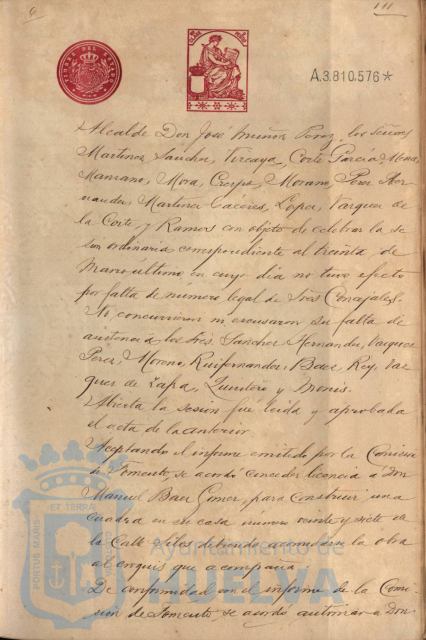 6
111
TIMBRE DEL ESTADO
A.3.810.576*
Alcalde Don José Muñoz Perez, los Señores
Martinez, Sanchez, Vizcaya, Corte, Garcia, Mora,
Manzano, Mora, Crespo, Moreno, Perez Her-
nandez, Martinez Caceres, Lopez, Vazquez de
la Corte y Ramos con objeto de celebrar la se
sion ordinaria correspondiente al treinta de
Marzo último en cuyo dia no tuvo efecto
por falta de número legal de Sres Concejales.
No concurrieron ni excusaron su falta de
asistencia los Sres. Sanchez Hernandez, Vazquez
Perez, Moreno, Ruifernandez, Baez, Rey, Vaz
quez de Zapa, Quintero y
Abierta la sesion fué leida y aprobada
el acta de la anterior
Aceptando el informe emitido por la Comision
de Fomento, se acordó conceder licencia á Don
Manuel Baez Gomez, para construir una
cuadra en su casa número veinte y siete de
la Calle debiendo acomodarse la obra
al croquis que acompaña.
De conformidad con el informe de la Comi
sion de Fomento se acordó autorizar a Don
PORTUS MARIS ET TERRAE
Ayuntamiento de
HUELVA